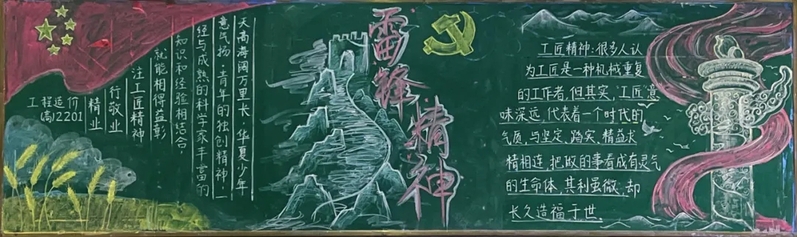 天高海阔万里长 华夏少年
意气扬 青年的独创精神,一
经与成熟的科学家丰富的
知识和经验相结合,
就能相得益彰
注工匠精神
行敬业
精业
工程造价
(高)2201
雷锋精神
工匠精神:很多人认
为工匠是一种机械重复
的工作者,但其实,工匠意
味深远,代表着一个时代的
气质,与坚定、踏实、精益求
精相连,把做的事看成有灵气
的生命体,其利虽微,却
长久造福于世.